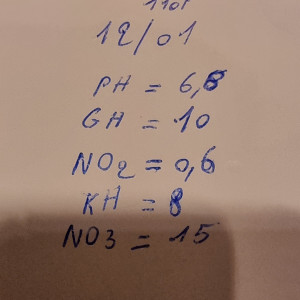 12/01
PH = 6,8
GH = 10
NO2 = 0,6
KH = 8
NO3 = 15